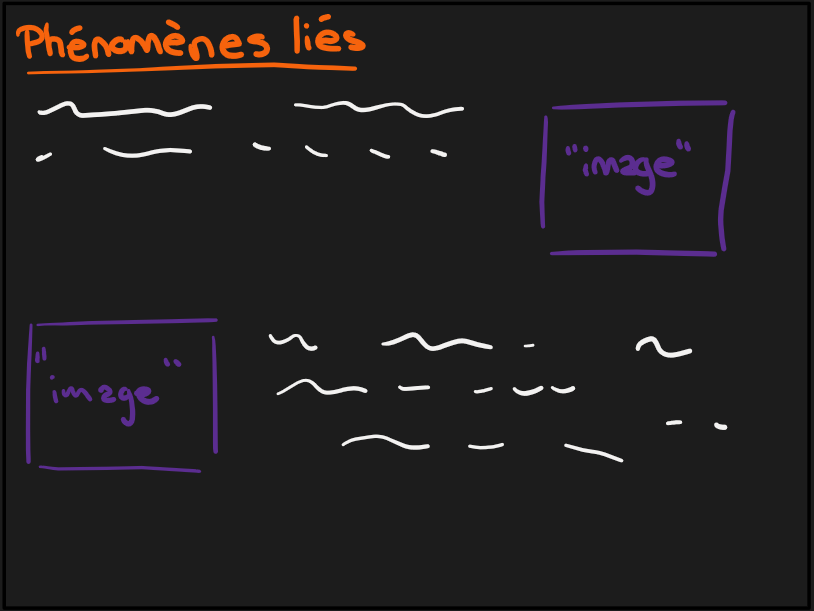 Phénomènes liés
"image"
"image"